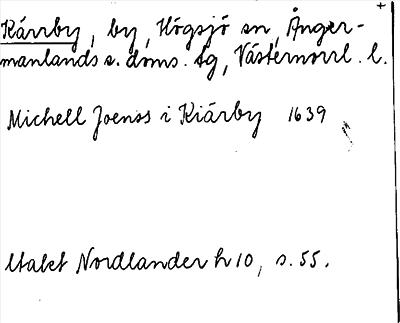 Kärrby, by, Högsjö sn, Ånger-
manlands s. doms. tg, Västernorrl. l.
Michell Joenss i Kiärby 1639
Utakt Nordlander h 10, s. 55.